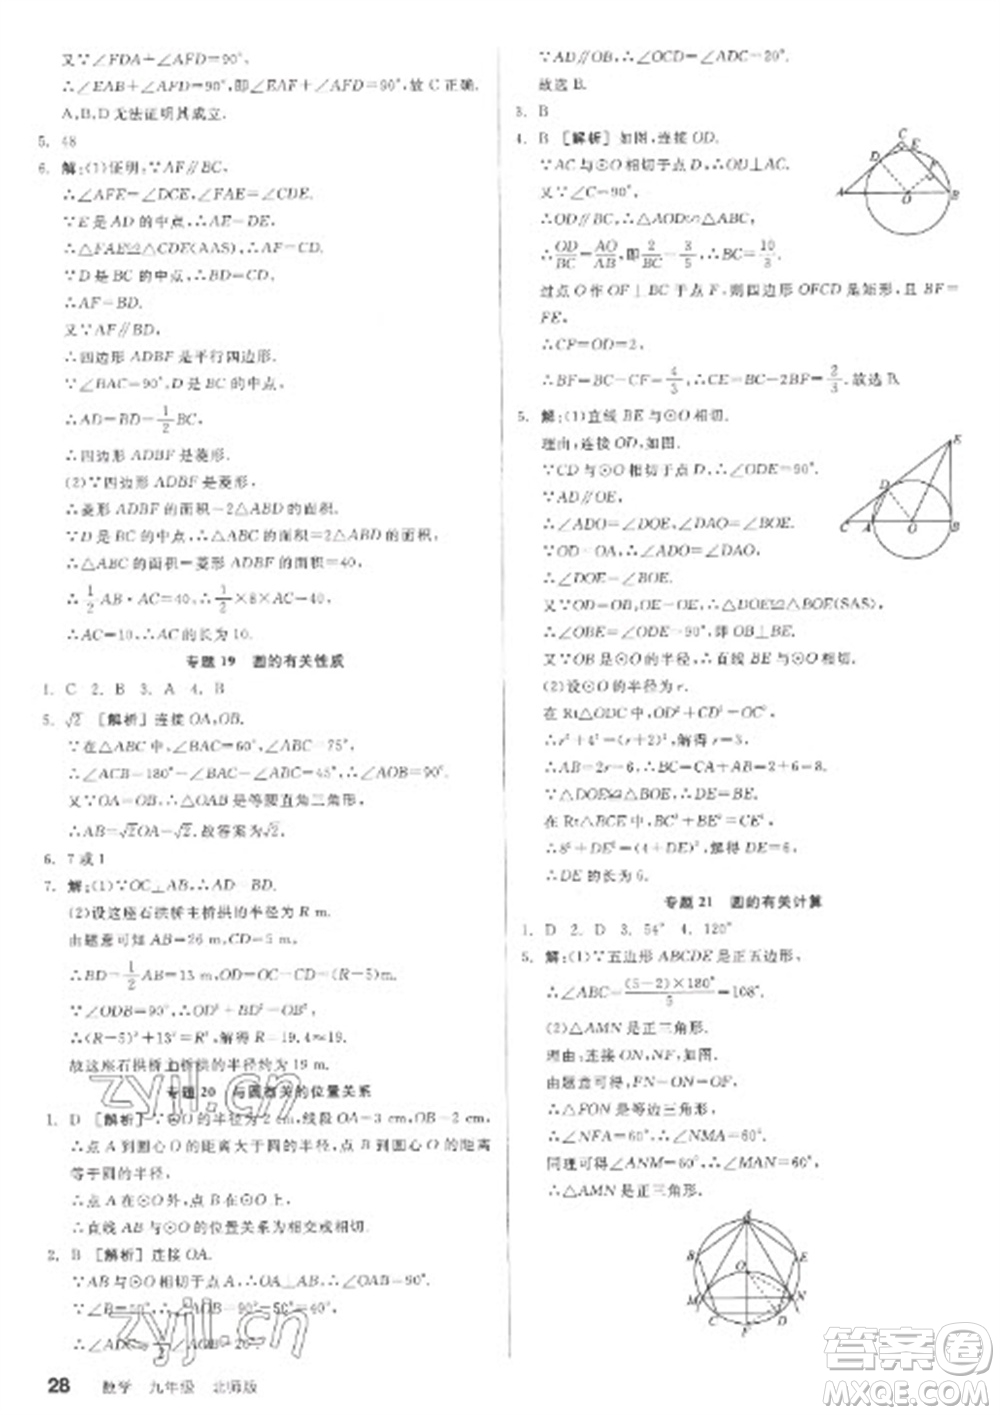 又∵∠FDA+∠AFD=90°,
∴∠EAB+∠AFD=90°,即∠EAF=90°,故 C 正确.
A,B,D 无法证明其成立.
5. 48
6. 解:(1)证明:∵AF∥BC,
∴∠AFE=∠DCE,∠FAE=∠CDE.
∵E 是 AD 的中点,∴AE=DE.
∴△FAE≌△CDE(AAS),∴AF=CD.
∵D 是 BC 的中点,∴BD=CD.
∴AF=BD.
又∵AF∥BD,
∴四边形 ADBF 是平行四边形.
∵∠BAC=90°,D 是 BC 的中点,
∴AD=BD=1/2BC,
∴四边形 ADBF 是菱形.
(2)∵四边形 ADBF 是菱形,
∴菱形 ADBF 的面积=2△ABD 的面积.
∵D 是 BC 的中点,∴△ABC 的面积=2△ABD 的面积.
∴△ABC 的面积=菱形 ADBF 的面积=40,
∴1/2AB·AC=40,∴1/2×8×AC=40,
∴AC=10,∴AC 的长为 10.
专题 19 圆的有关性质
1. C 2. B 3. A 4. B
5. √2 [解析]连接 OA,OB.
∵在△ABC 中,∠BAC=60°,∠ABC=75°,
∴∠ACB=180°-∠BAC-∠ABC=45°,∴∠AOB=90°.
又∵OA=OB,∴△OAB 是等腰直角三角形,
∴AB=√2OA=√2.故答案为√2.
6. 7 或 1
7. 解:(1)∵OC⊥AB,∴AD=BD.
(2)设这座石拱桥主桥拱的半径为 R m.
由题意可知 AB=26 m,CD=5 m,
∴BD=1/2AB=13 m,OD=OC-CD=(R-5)m.
∵∠ODB=90°,∴OD²+BD²=OB²,
∴(R-5)²+13²=R²,解得 R=19.4≈19.
故这座石拱桥主桥拱的半径约为 19 m.
专题 20 与圆有关的位置关系
1. D [解析]∵⊙O 的半径为 2 cm,线段 OA=3 cm,OB=2 cm,
∴点 A 到圆心 O 的距离大于圆的半径,点 B 到圆心 O 的距离
等于圆的半径,
∴点 A 在⊙O 外,点 B 在⊙O 上,
∴直线 AB 与⊙O 的位置关系为相交或相切.
2. B [解析]连接 OA.
∵AB 与⊙O 相切于点 A,∴OA⊥AB,∴∠OAB=90°.
∵∠B=50°,∴∠AOB=90°-50°=40°,
∴∠ADC=1/2∠AOB=20°.
28 数学 九年级 北师版
∵AD∥OB,∴∠OCD=∠ADC=20°.
故选 B.
3. B
4. B [解析]如图,连接 OD.
∵AC 与⊙O 相切于点 D,∴OD⊥AC.
又∵∠C=90°,
∴OD∥BC,∴△AOD∽△ABC,
∴OD/BC=AO/AB,即 2/BC=3/5,∴BC=10/3.
过点 O 作 OF⊥BC 于点 F,则四边形 OFCD 是矩形,且 BF=
FE,
∴CF=OD=2,
∴BF=BC-CF=4/3,∴CE=BC-BE=2/3.故选 B.
5. 解:(1)直线 BE 与⊙O 相切.
理由:连接 OD,如图.
∵CD 与⊙O 相切于点 D,∴∠ODE=90°.
∵AD∥OE,
∴∠ADO=∠DOE,∠DAO=∠BOE.
∵OD=OA,∴∠ADO=∠DAO,
∴∠DOE=∠BOE.
又∵OD=OB,OE=OE,∴△DOE≌△BOE(SAS),
∴∠OBE=∠ODE=90°,∴OB⊥BE.
∵OB 是⊙O 的半径,∴直线 BE 与⊙O 相切.
(2)设⊙O 的半径为 r.
在 Rt△ODC 中,OD²+CD²=OC²,
∴r²+4²=(r+2)²,解得 r=3,
∴AB=2r=6,∴BC=CA+AB=2+6=8.
∵△DOE≌△BOE,∴BE=DE.
在 Rt△BCE 中,BC²+BE²=CE²,
∴8²+BE²=(4+DE)²,解得 DE=6,
∴DE 的长为 6.
专题 21 圆的有关计算
1. D 2. D 3. 54° 4. 120°
5. 解:(1)∵五边形 ABCDE 是正五边形,
∴∠ABC=(5-2)×180°/5=108°.
(2)△AMN 是正三角形.
理由:连接 ON,NF,如图.
由题意可得 FN=ON=OF,
∴△FON 是等边三角形,
∴∠NFA=60°,∴∠NMA=60°.
同理可得∠ANM=60°,∴∠MAN=60°,
∴△AMN 是正三角形.
C
E
D
F
A
O
B
E
D
C
A
O
B
A
B
E
O
M
N
C
D
F
zyjl.cn
zyjl.cn
答案圈
MXQE.COM